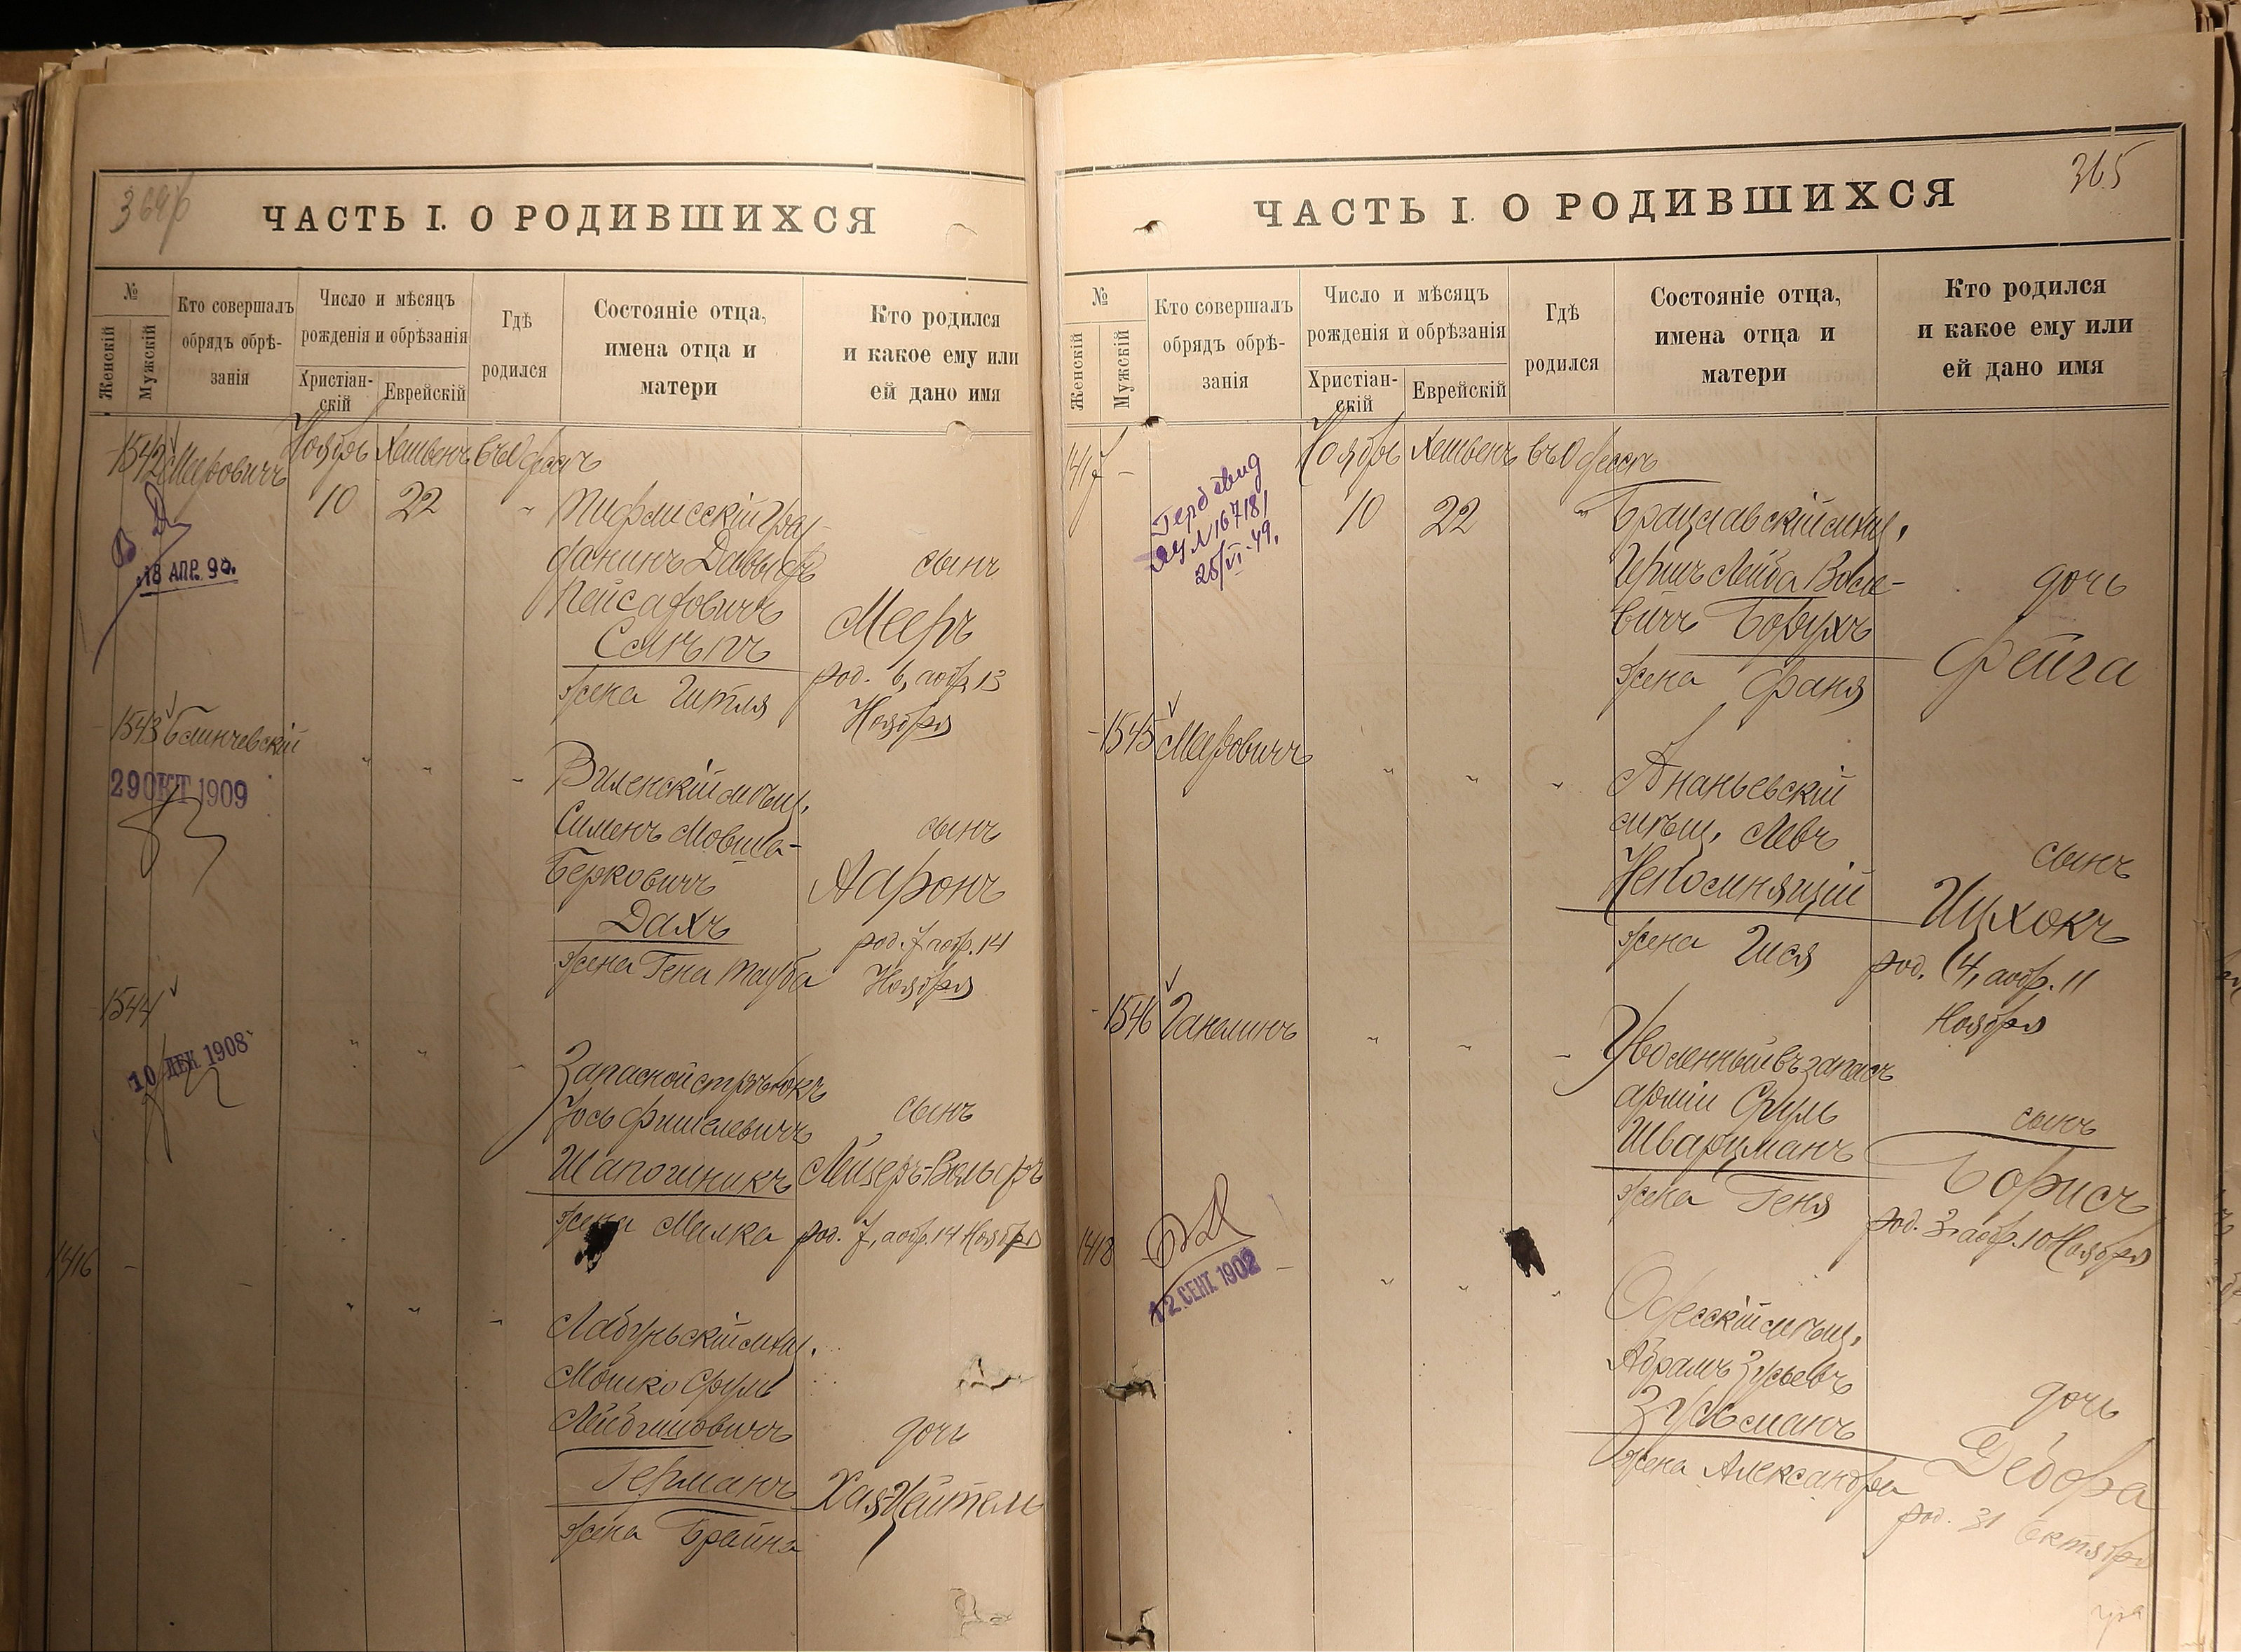 365
ЧАСТЬ I. О РОДИВШИХСЯ
№
Женскій
Мужскій
Кто совершалъ
обрядъ обрѣ-
занія
Число и мѣсяцъ
рожденія и обрѣзанія
Христіан-
скій
Еврейскій
Гдѣ
родился
Состояніе отца,
имена отца и
матери
Кто родился
и какое ему или
ей дано имя
1542 Меровичъ
Ноябрь Хешвенъ въ Одессѣ
10 22 "
18 АПР. 90.
Тифлисскій граж-
данинъ Давыдъ
Пейсаховичъ
жена Гитля
сынъ
Мееръ
род. 6, аобр. 13
Ноября
1543 Блинчевскій
" " "
29 ОКТ 1909
Виленскій мѣщ.
Сименъ Мовша-
Берковичъ
Дахъ
жена Гена Тауба
сынъ
Ааронъ
род. 7 аобр. 14
Ноября
1544
" " "
10 ДЕК 1908
Запасной стрѣлокъ
Іось Фишелевичъ
Шапошникъ
жена Малка
сынъ
Лейзеръ-Вольфъ
род. 7, аобр. 14 Ноября
1416 - -
" " "
Лабуньскій мѣщ.
Мошко Сруль
Лейбишовичъ
Германъ
жена Брайна
дочь
Хая-Цейтель
ЧАСТЬ I. О РОДИВШИХСЯ
№
Женскій
Мужскій
Кто совершалъ
обрядъ обрѣ-
занія
Число и мѣсяцъ
рожденія и обрѣзанія
Христіан-
скій
Еврейскій
Гдѣ
родился
Состояніе отца,
имена отца и
матери
Кто родился
и какое ему или
ей дано имя
1417 -
Ноябрь Хешвенъ въ Одессѣ
10 22 "
№ 167181
25/VI-49.
Брацлавскій мѣщ.
Гершъ Лейба Воль-
вичъ Борухъ
жена Фаня
дочь
Фейга
1545 Меровичъ
" " "
Ананьевскій
мѣщ. Левъ
Непомнящій
жена Гися
сынъ
Ицхокъ
род. 4, аобр. 11
Ноября
1546 Ганелинъ
" " "
Уволенный въ запасъ
арміи Сруль
Шварцманъ
жена Геня
сынъ
Борисъ
род. 3, аобр. 10 Ноября
1418 -
" " "
12 СЕНТ. 1902
Одесскій мѣщ.
Абрамъ Зусьевъ
Зусьманъ
жена Александра
дочь
Дебора
род. 31 Октября